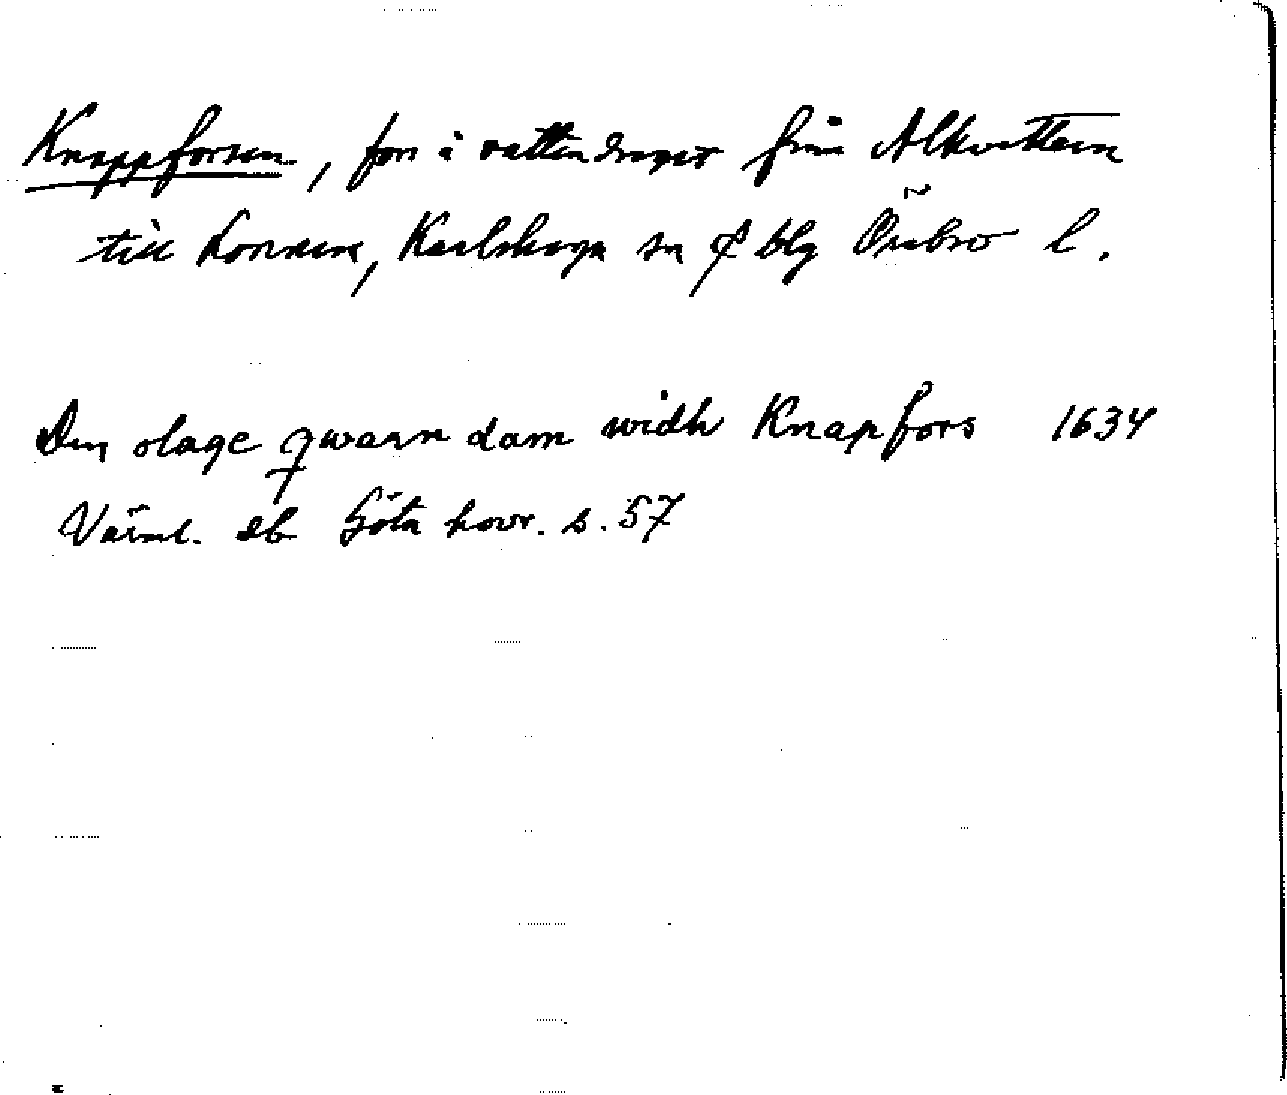 Knappforsen, fors i vattendraget från Alkvettern
till Lonnen, Karlskoga sn o blg Örebro l.
Den olage qwarn dam widh Knapfors 1634
Värml. db Göta hovr. s. 57